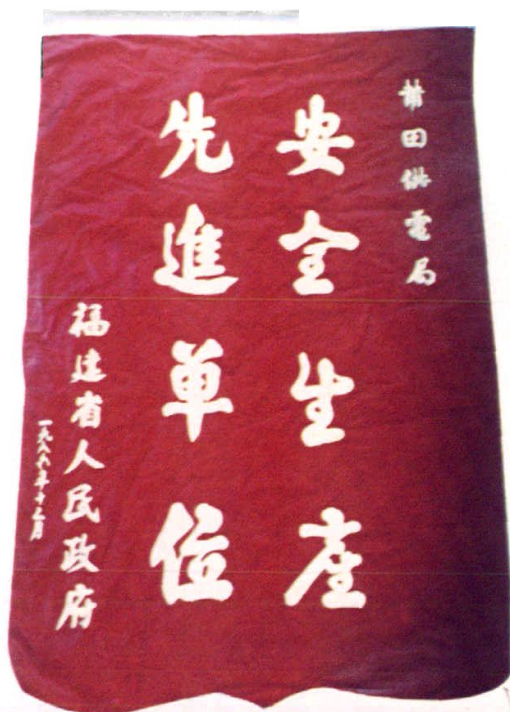 莆田供電局
安全生産
先進单位
福建省人民政府
一九八六年十二月